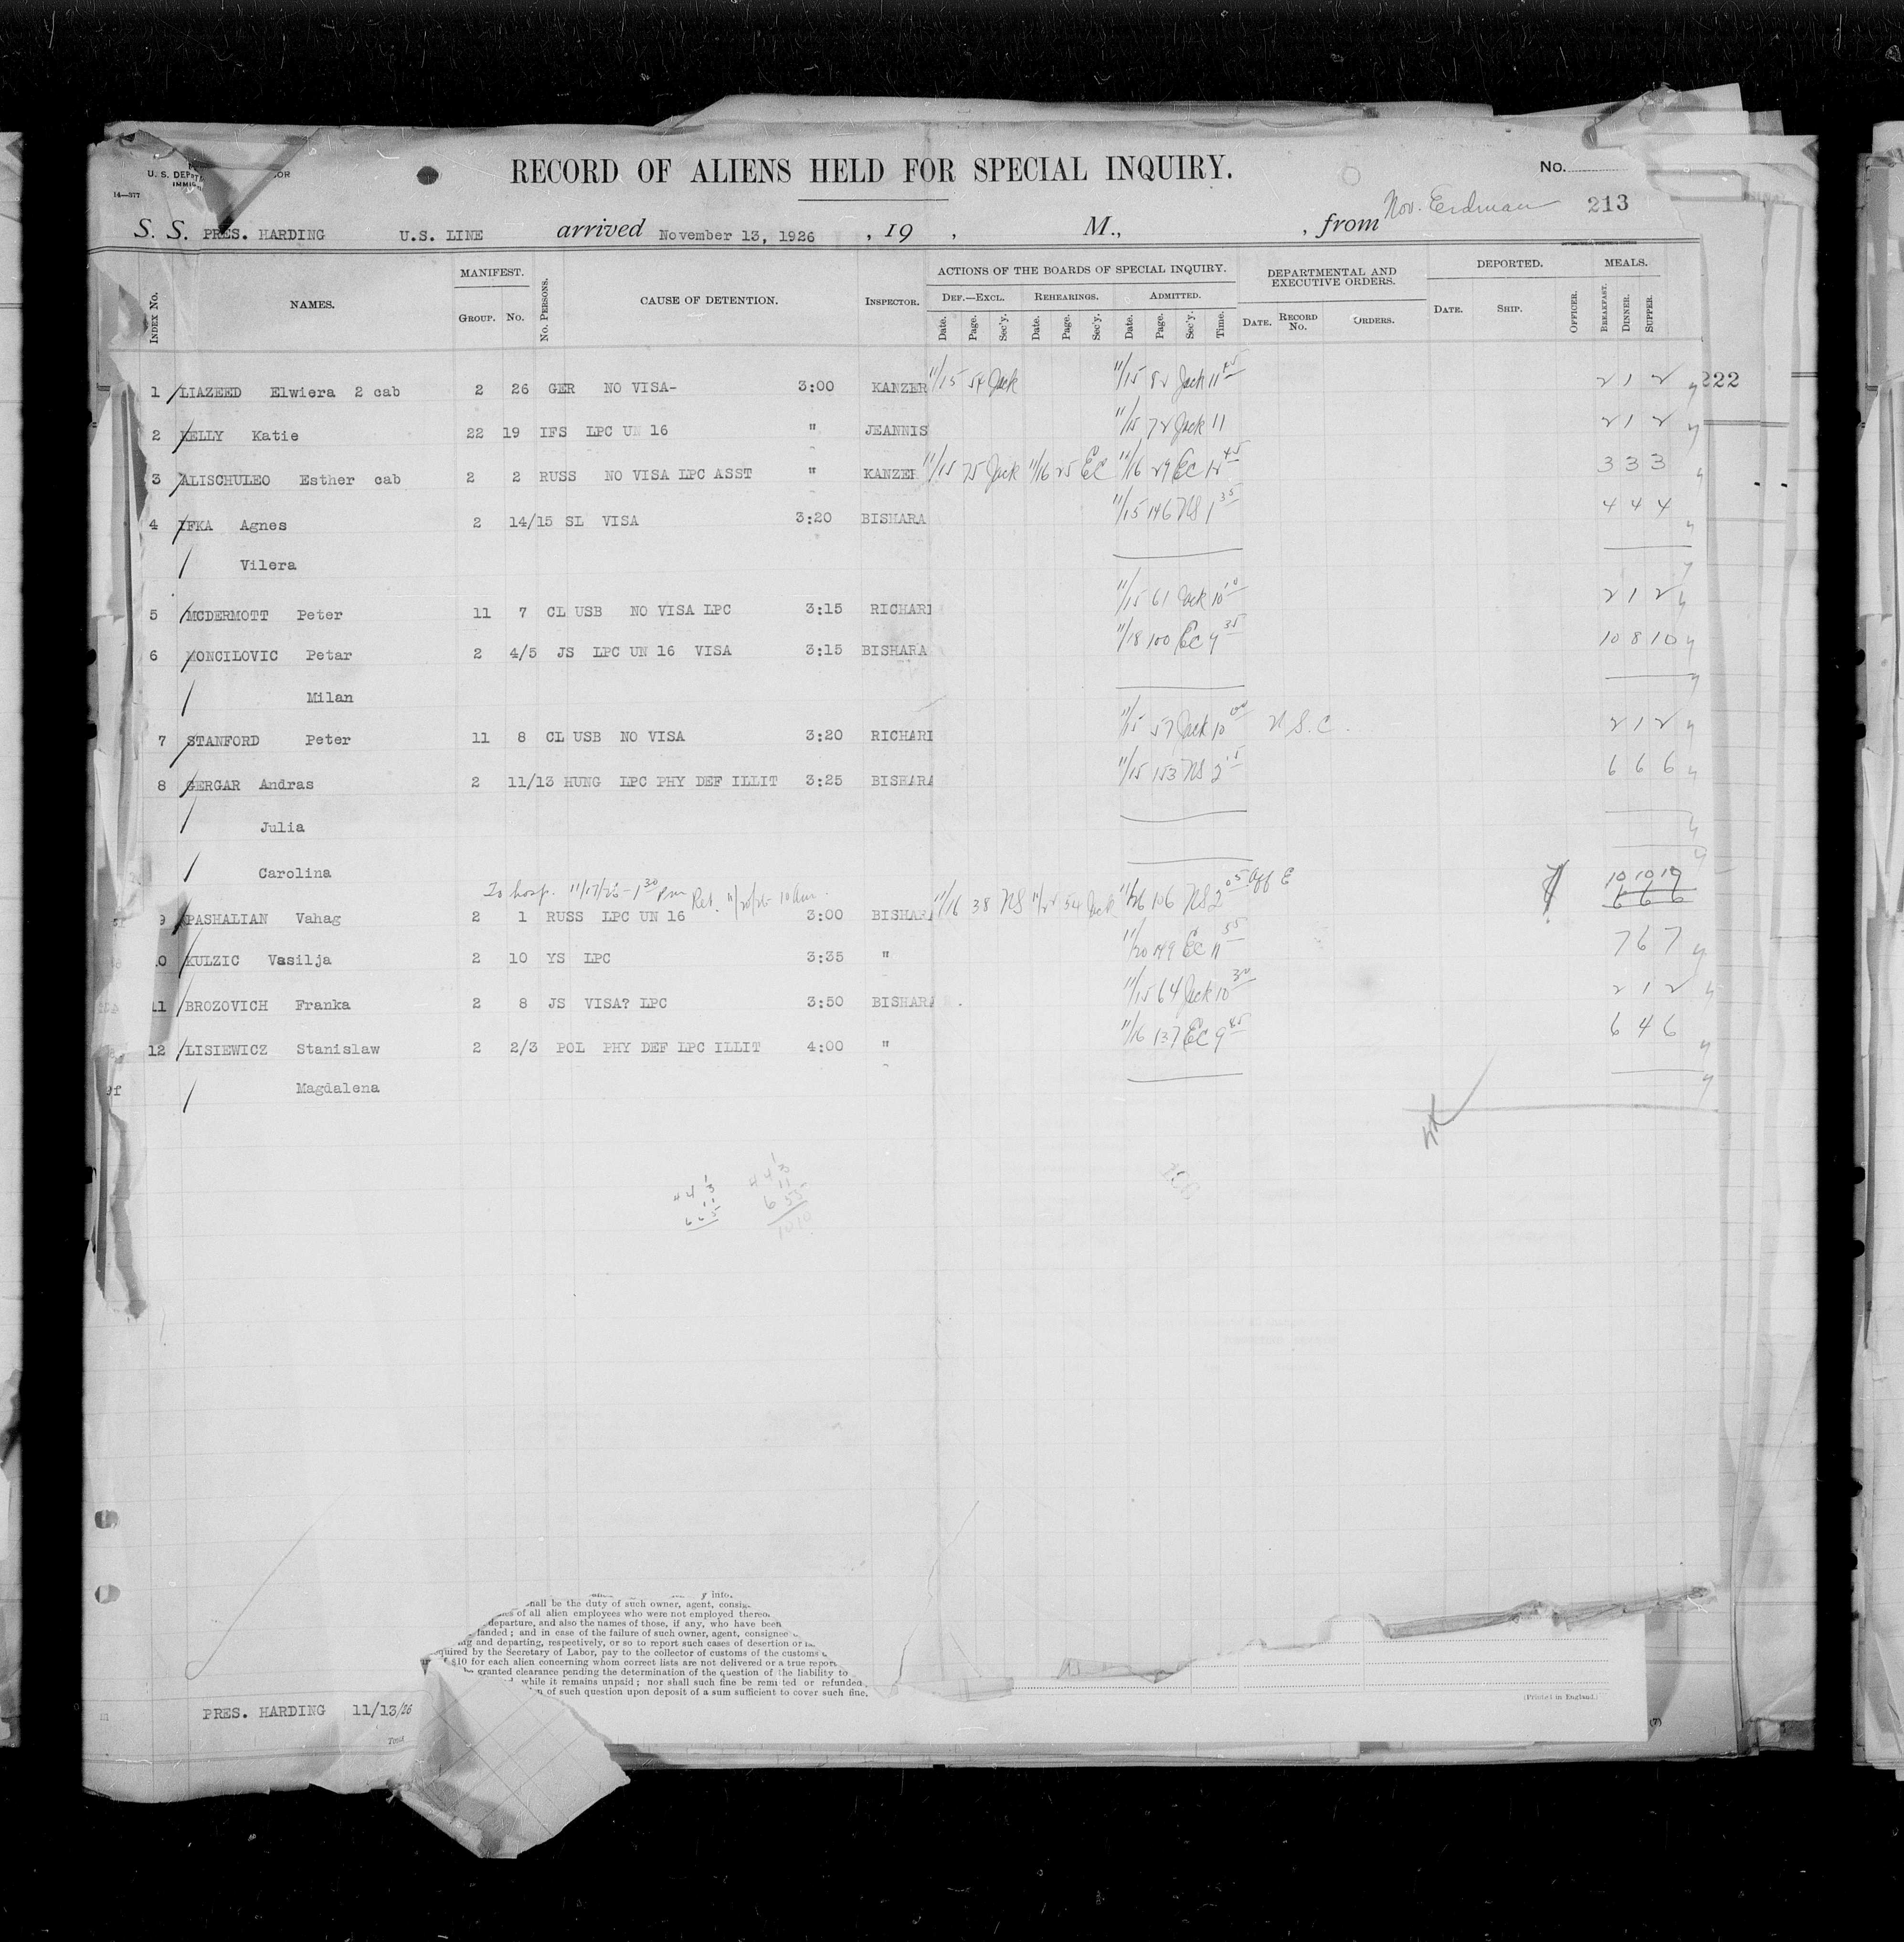 U. S. DEP
IMMIG
14—577
RECORD OF ALIENS HELD FOR SPECIAL INQUIRY.
No.
Nov. Erdman 213
S. S. PRES. HARDING U.S. LINE arrived November 13, 1926 , 19 , M., , from
INDEX No. NAMES. MANIFEST. GROUP. No. No. PERSONS. CAUSE OF DETENTION. INSPECTOR. ACTIONS OF THE BOARDS OF SPECIAL INQUIRY. DEF.—EXCL. Date. Page. Sec'y. REHEARINGS. Date. Page. Sec'y. ADMITTED. Date. Page. Sec'y. Time. DEPARTMENTAL AND EXECUTIVE ORDERS. DATE. RECORD No. ORDERS. DEPORTED. DATE. SHIP. OFFICER. MEALS. BREAKFAST. DINNER. SUPPER.
1 LIAZEED Elwiera 2 cab 2 26 GER NO VISA- 3:00 KANZER 11/15 54 Jack 11/15 82 Jack 11 45 2 1 2
222
2 KELLY Katie 22 19 IFS LPC UN 16 " JEANNIS 11/15 72 Jack 11 2 1 2
3 ALISCHULEO Esther cab 2 2 RUSS NO VISA LPC ASST " KANZER 11/15 75 Jack 11/16 25 EC 11/16 29 EC 12 45 3 3 3
4 IFKA Agnes 2 14/15 SL VISA 3:20 BISHARA 11/15 146 NS 1 35 4 4 4
Vilera
5 MCDERMOTT Peter 11 7 CL USB NO VISA LPC 3:15 RICHARI 11/15 61 Jack 10 10 2 1 2
6 MONCILOVIC Petar 2 4/5 JS LPC UN 16 VISA 3:15 BISHARA 11/18 100 EC 4 35 10 8 10
Milan
7 STANFORD Peter 11 8 CL USB NO VISA 3:20 RICHARI 11/15 57 Jack 10 00 U.S.C. 2 1 2
8 GERGAR Andras 2 11/13 HUNG LPC PHY DEF ILLIT 3:25 BISHARA 11/15 153 NS 2 15 6 6 6
Julia
Carolina
To hosp. 11/17/26 - 1 30 Pm Ret. 11/20/26 10 am. 10 10 10
9 PASHALIAN Vahag 2 1 RUSS LPC UN 16 3:00 BISHARA 11/16 38 NS 11/22 54 Jack 11/26 106 NS 2 05 aff E 6 6 6
10 KULZIC Vasilja 2 10 YS LPC 3:35 " 11/20 149 EC 11 55 7 6 7
11 BROZOVICH Franka 2 8 JS VISA? LPC 3:50 BISHARA 11/15 64 Jack 10 30 2 1 2
12 LISIEWICZ Stanislaw 2 2/3 POL PHY DEF LPC ILLIT 4:00 " 11/16 137 EC 9 45 6 4 6
Magdalena
4 4 3
1 1
6 5 5
10 10
shall be the duty of such owner, agent,
of all alien employees who were not employed
departure, and also the names of those, if any, who have been
landed; and in case of the failure of such owner, agent, consignee
and departing, respectively, or so to report such cases of desertion or
quired by the Secretary of Labor, pay to the collector of customs of the customs
$10 for each alien concerning whom correct lists are not delivered or a true report
granted clearance pending the determination of the question of the liability to
while it remains unpaid; nor shall such fine be remitted or refunded
of such question upon deposit of a sum sufficient to cover such fine.
(Printed in England.)
(7)
PRES. HARDING 11/13/26
Total